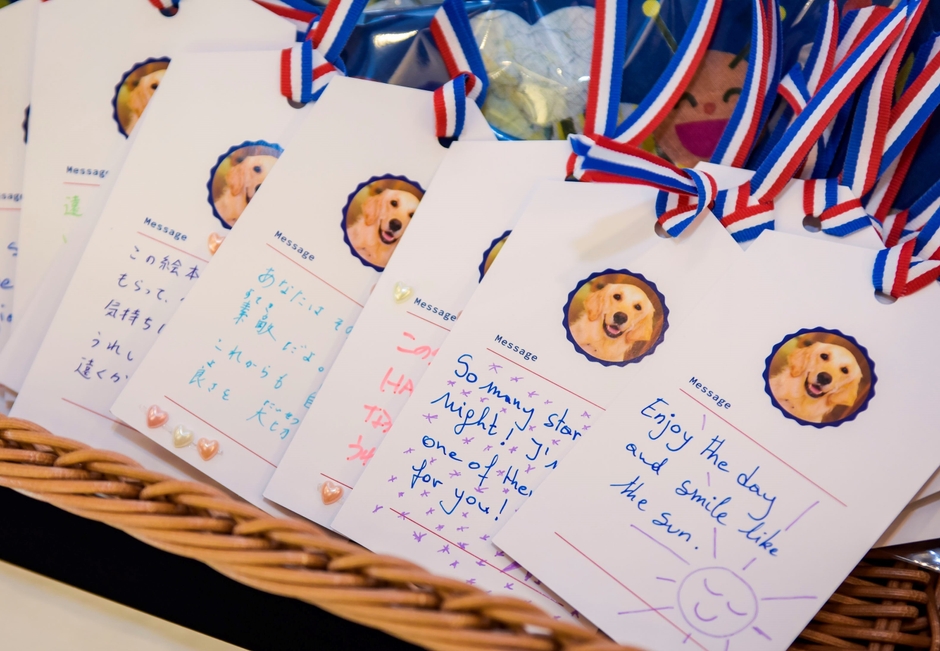 Message
Message
連
Message
この絵本
もらって、
気持ち
うれし
遠くか
Message
あなたは その
素敵 だよ。
これからも
良さを
Message
この
HA
Message
So many star
night! I'm
one of the
for you!
Message
Enjoy the day
and smile like
the sun.